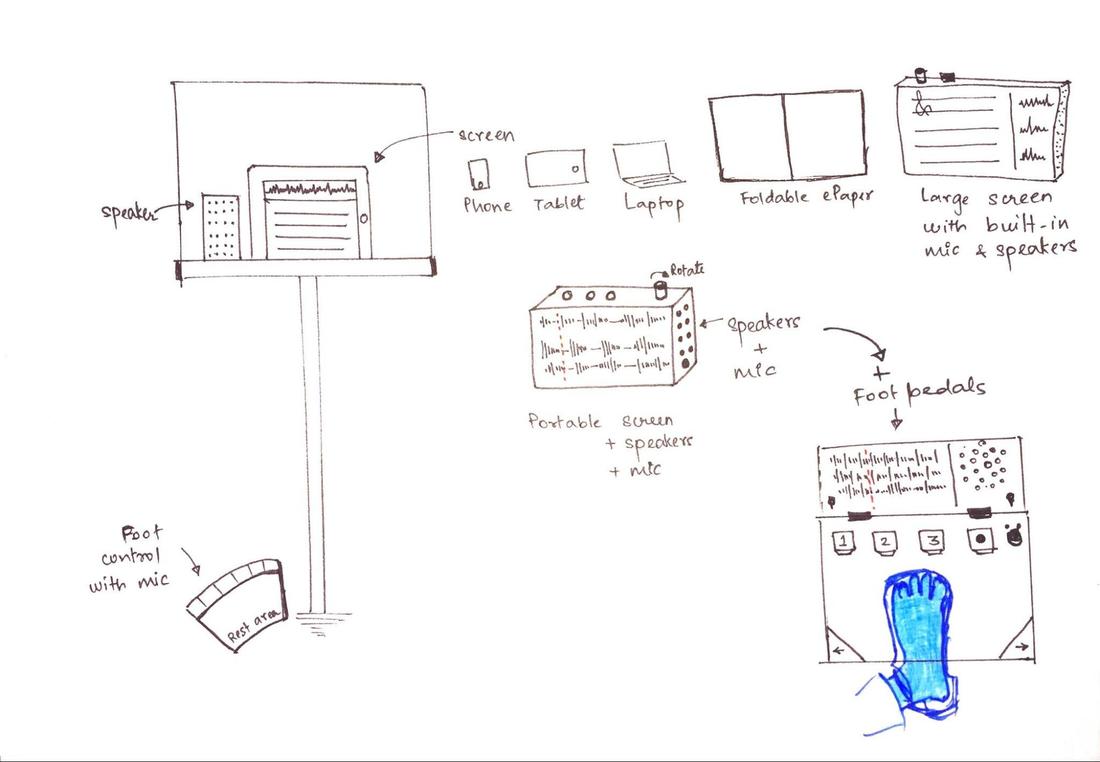 screen
speaker
Phone
Tablet
Laptop
Foldable ePaper
Large screen
with built-in
mic & speakers
Rotate
speakers
+
mic
Portable screen
+ speakers
+ mic
+
Foot pedals
1 2 3
Foot
control
with mic
Rest area